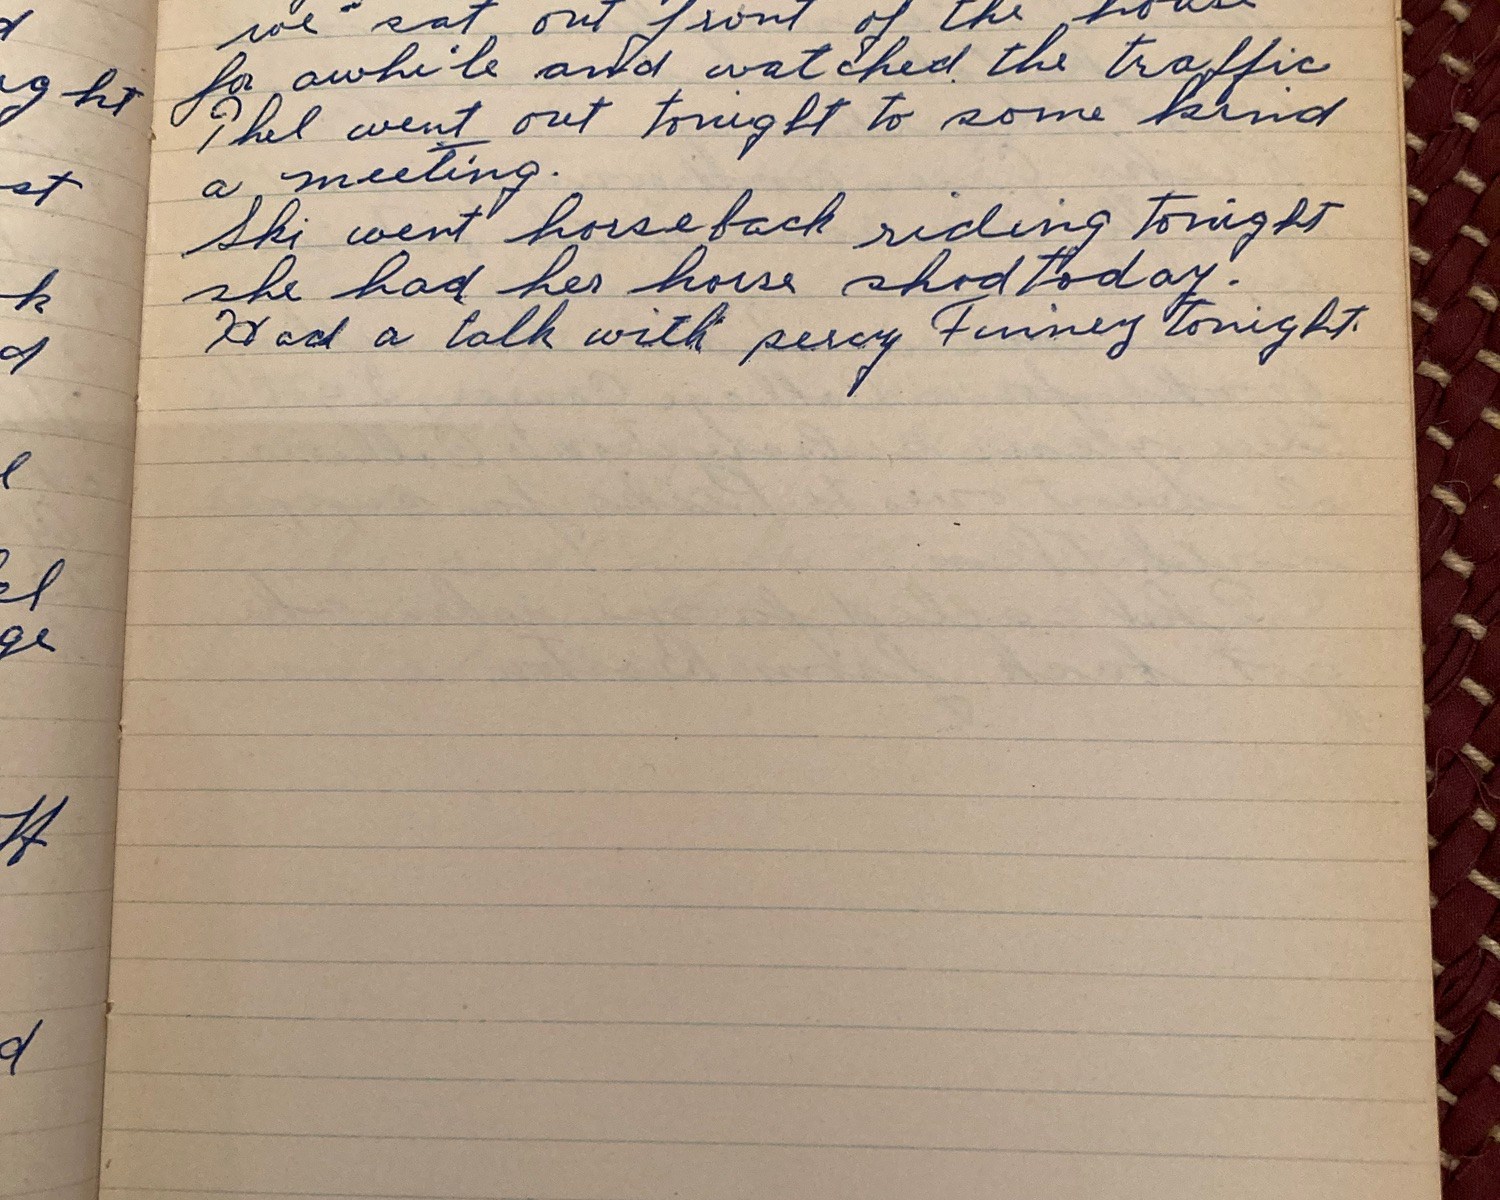 we sat out front of the house
for awhile and watched the traffic
Phel went out tonight to some kind
a meeting.
Ski went horseback riding tonight
she had her horse shod today.
Had a talk with percy Finney tonight.
ght
st
k
d
l
el
ge
d